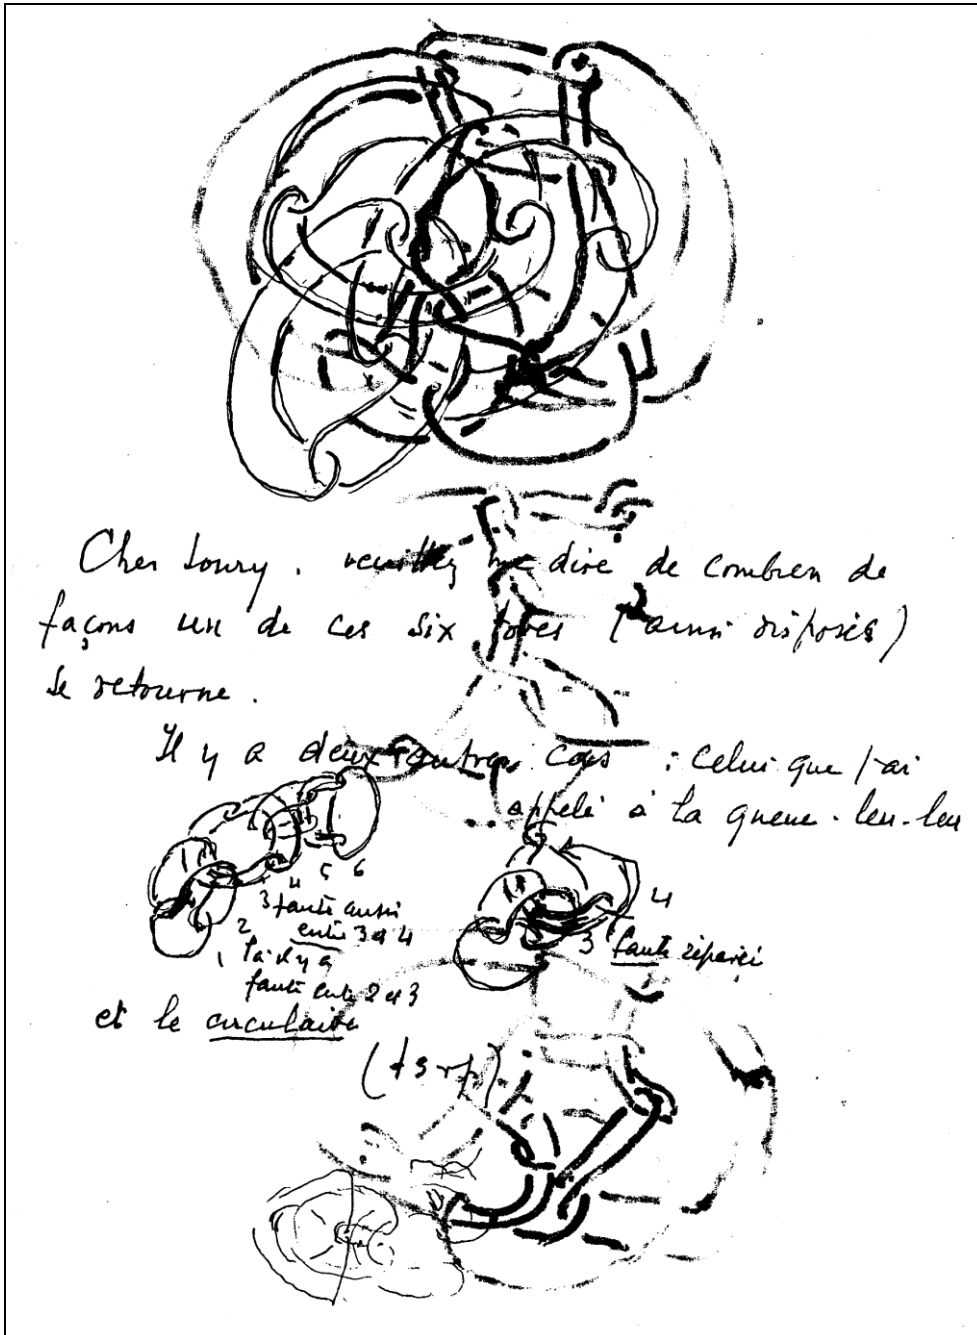 Cher Soury. veuillez me dire de combien de
façons un de ces six tores (ainsi disposés)
se retourne.
Il y a deux autres cas : celui que j'ai
appelé à la queue-leu-leu
4 5 6
3 faute aussi
entre 3 et 4
2
1 là il y a
faute entre 2 et 3
4
3 faute réparée
et le circulaire
(tsvp)